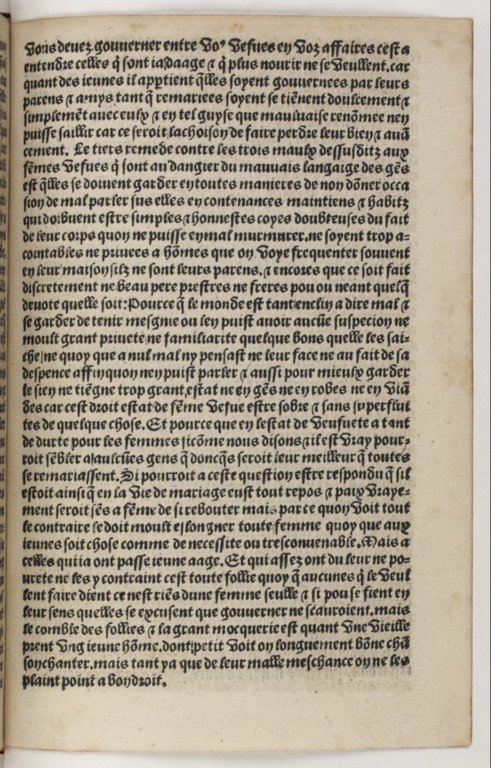 Vous deuez.gouuerner entre Voꝰ Vefues en Voz affaires cest a
entendre celles q̃ sont ia daage ⁊ q̃ plus nourir ne se Veullent. car
quant des ieunes il apꝑtient q̃lles soyent gouuernees par leurs
parens ⁊ amys. tant q̃ remariees soyent se tiẽnent doulcement ⁊
simplemẽt auec eulx ⁊ en tel guyse que mauluaise renõmee nen
puisse saillir car ce seroit lachoison de faire perdre leur bien ⁊ auã
cement. Le tiers remede contre les trois maulx dessusditz aux
fẽmes Vefues q̃ sont au dangier du mauuais langaige des gẽs
est q̃lles se doiuent garder en toutes manieres de non dõner occa
sion de mal parler sus elles en contenances maintiens ⁊ habitz
qui doibuent estre simples ⁊ honnestes coyes doubteuses du fait
de leur corps quon ne puisse en mal murmurer. ne soyent trop a=
cointables ne priuees a hõmes que on Voye frequenter souuent
en leur maison silz ne sont leurs parens. ⁊ encores que ce soit fait
discretement ne beau pere prestres ne freres pou ou neant quelq̃
deuote quelle soit: Pource q̃ le monde est tant enclin a dire mal ⁊
se garder de tenir mesgnie ou len puist auoir aucũe suspecion ne
moult grant priuete ne familiarite quelque bons quelle les sai=
che/ne quoy que a nul mal ny pensast ne leur face ne au fait de sa
despence affin quon nen puist parler ⁊ aussi pour mieulx garder
le sien ne tiẽgne trop grant estat ne en gẽs ne en robes ne en Viã
des car cest droit estat de fẽme Vefue estre sobre ⁊ sans supersfluí
tes de quelque chose. Et pource que en lestat de Veufuete a tant
de durte pour les femmes sicõme nous disons ⁊ il est Vray pour=
roit sẽbler a aulcũes gens q̃ doncq̃s seroit leur meilleur q̃ toutes
se remariassent. Si pourroit a ceste question estre respondu q̃ sil
estoit ainsi q̃ en la Vie de mariage eust tout repos ⁊ paix Vraye=
ment seroit sẽs a fẽme de si rebouter mais parce quon Voit tout
le contraire se doit moult eslongner toute femme quoy que aux
ieunes soit chose comme de necessite ou tresconuenable. Mais a
celles qui ia ont passe ieune aage. Et qui assez ont du leur ne po=
urete ne les y contraint cest toute follie quoy q̃ aucunes q̃ le Veul
lent faire dient ce nest riẽs dune femme seulle ⁊ si pou se fient en
leur sens quelles se excusent que gouuerner ne scauroient. mais
le comble des follies ⁊ la grant mocquerie est quant Vne Vieille
prent Vng ieune hõme. dont petit Voit on longuement bõne chã
son chanter. mais tant ya que de leur malle meschance on ne les
plaint point a bon droit.